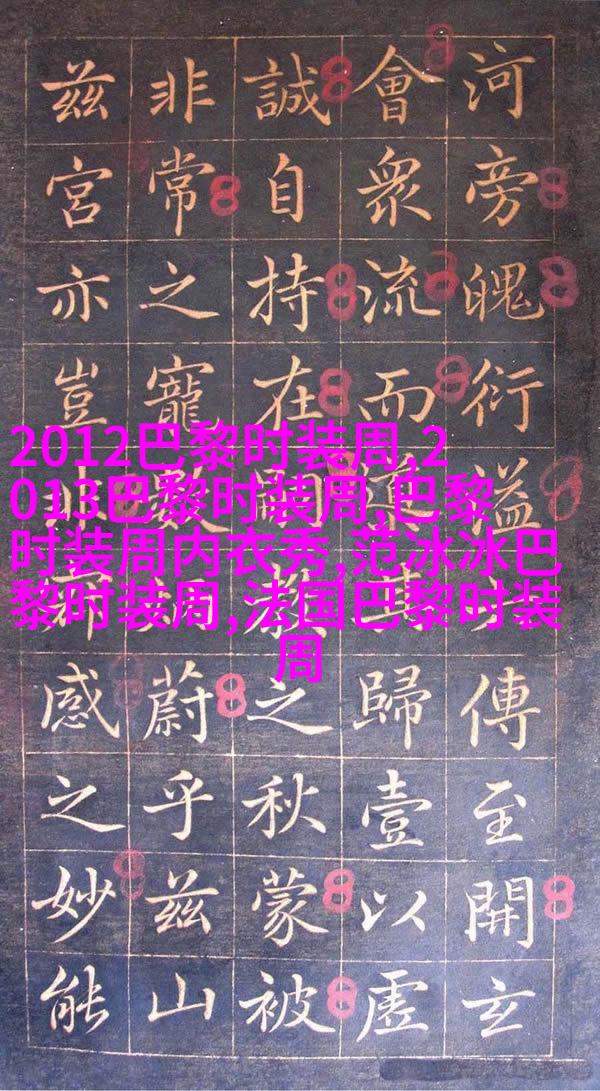 河旁魄衍溢傳至開玄
會衆流而其歸壹以虛
誠自持在之秋蒙被
非常之寵數蔚乎茲山
茲宮亦豈感之妙能
2012巴黎时装周,2
013巴黎时装周,巴黎
时装周内衣秀,范冰冰巴
黎时装周,法国巴黎时装
周